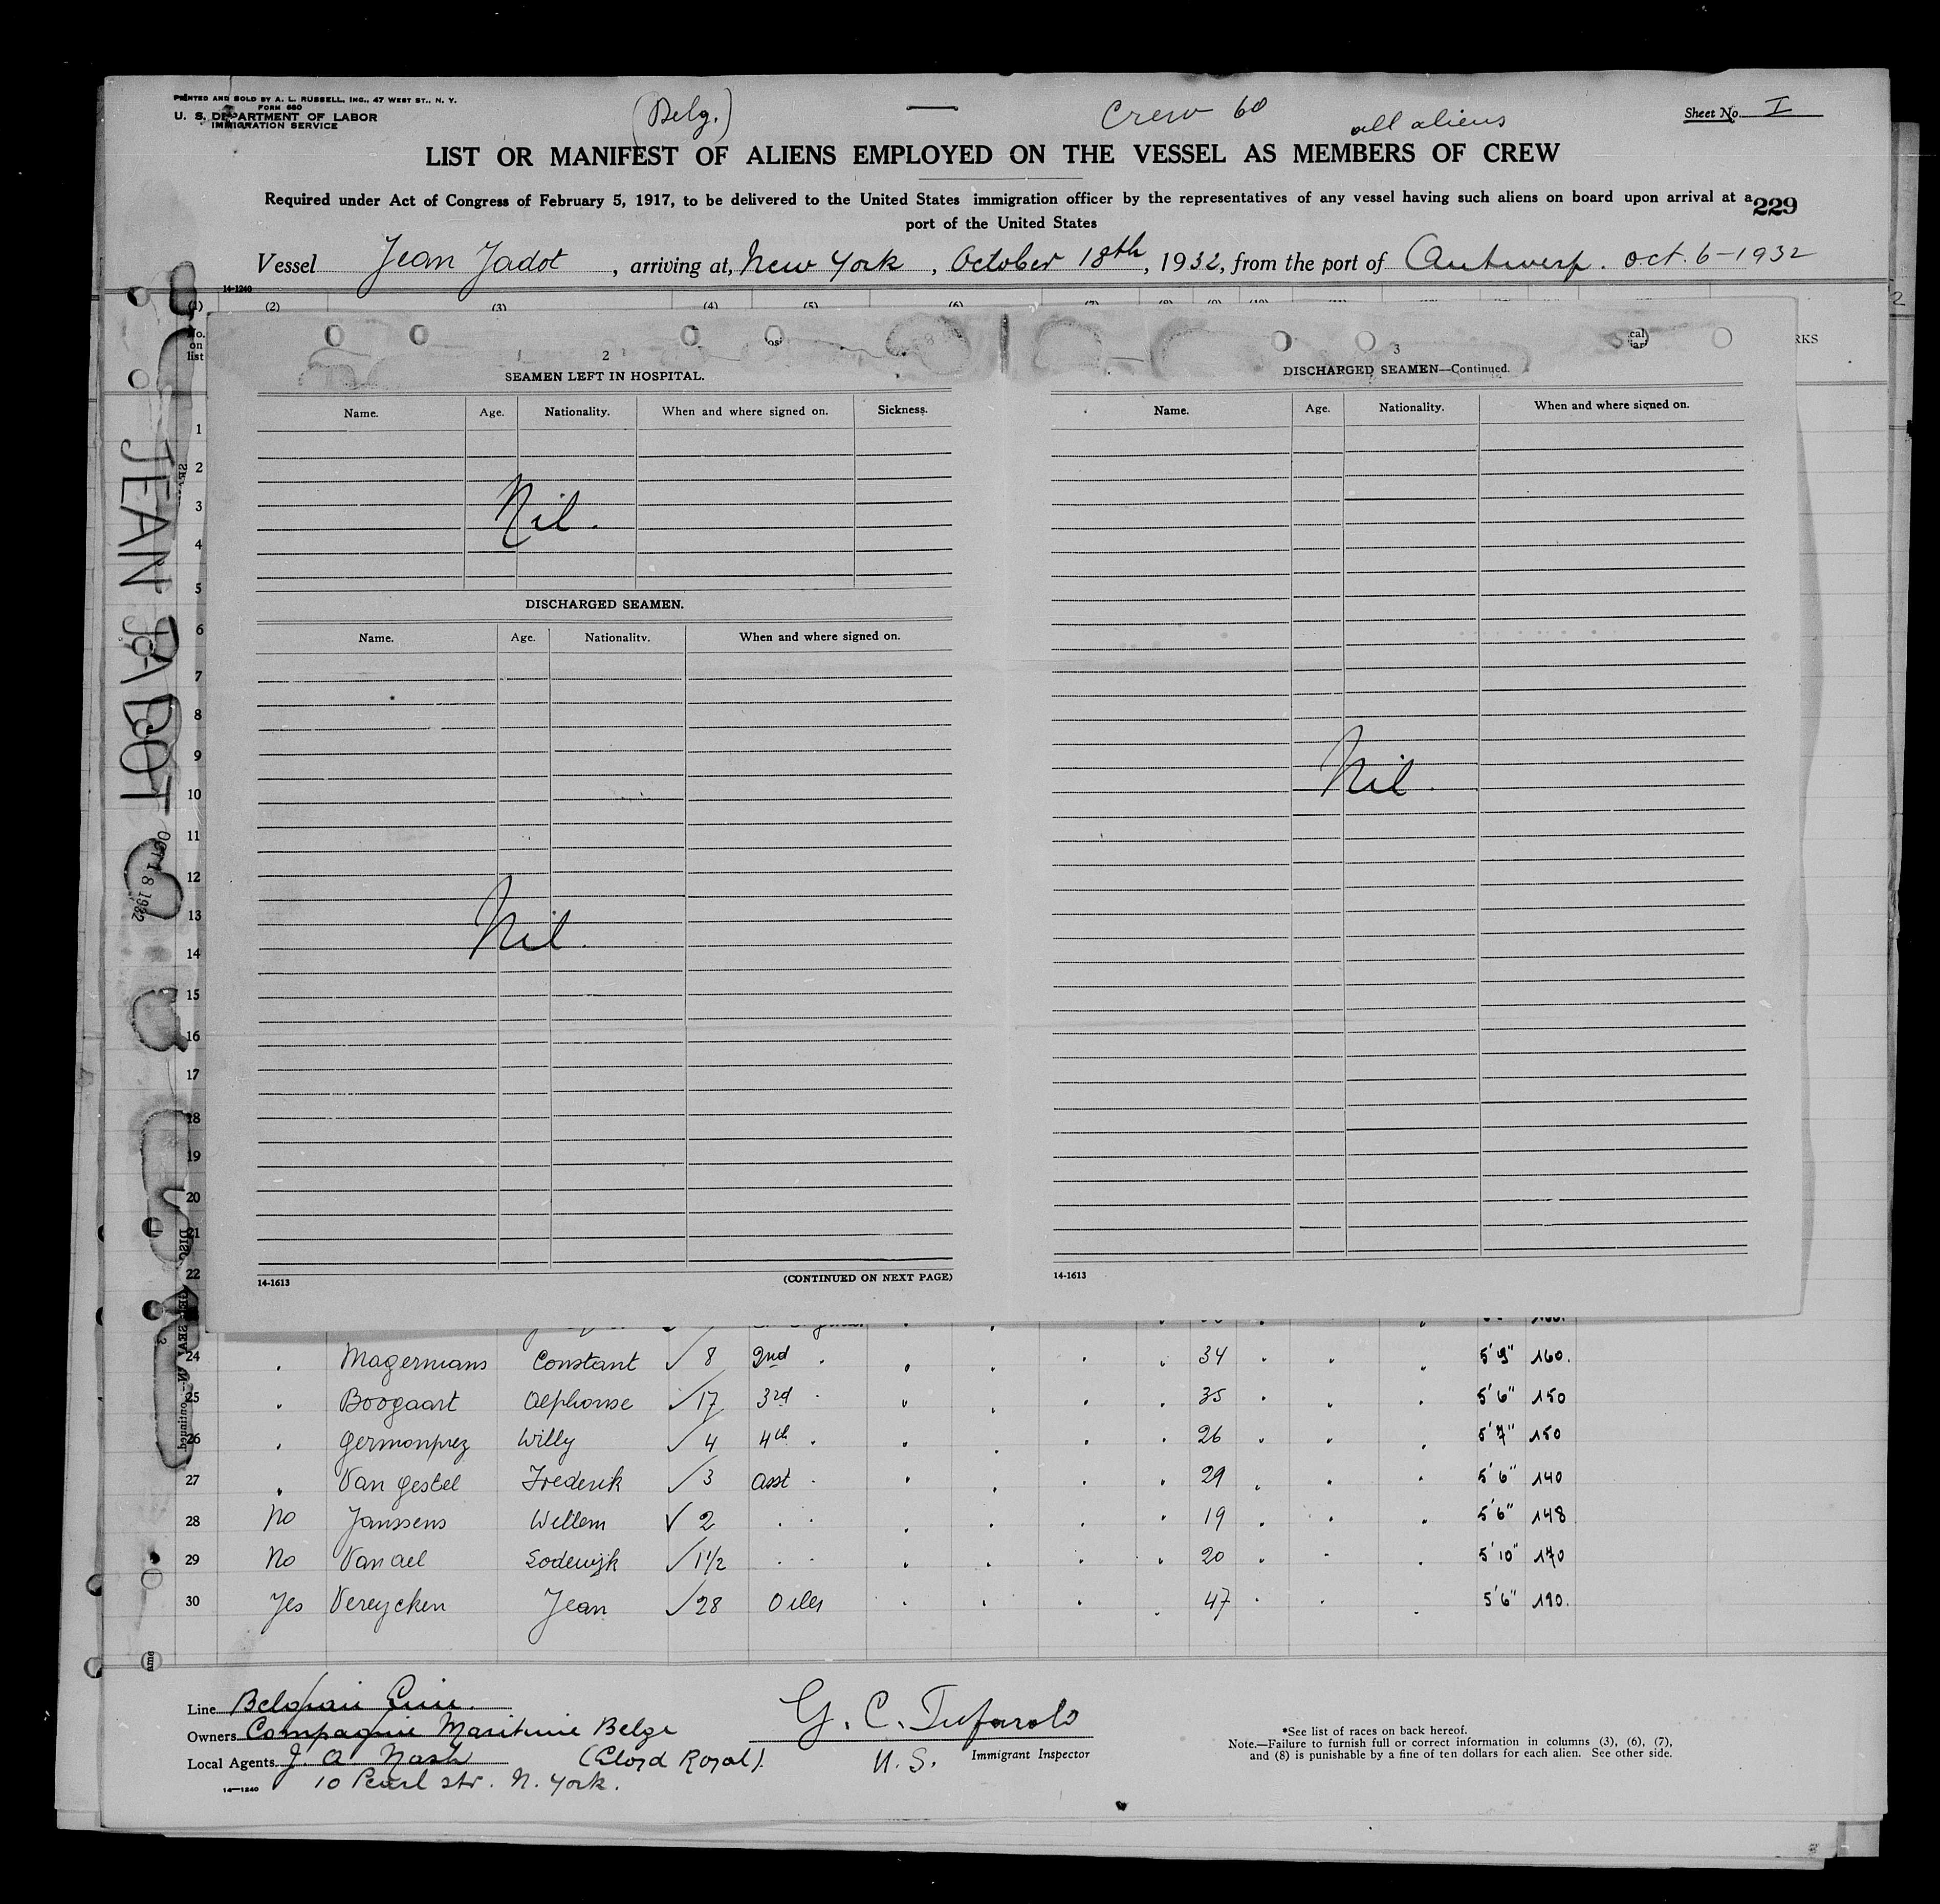 PRINTED AND SOLD BY A. L. RUSSELL, INC., 47 WEST ST., N. Y.
FORM 680
U. S. DEPARTMENT OF LABOR
IMMIGRATION SERVICE
(Belg.)
Crew 60
all aliens
Sheet No. I
LIST OR MANIFEST OF ALIENS EMPLOYED ON THE VESSEL AS MEMBERS OF CREW
Required under Act of Congress of February 5, 1917, to be delivered to the United States immigration officer by the representatives of any vessel having such aliens on board upon arrival at a
port of the United States
229
Vessel Jean Jadot, arriving at, New York, October 18th, 1932, from the port of Antwerp. Oct. 6-1932
14-1240
(1) (2) (3) (4) (5) (6) (7) (8) (9) (10)
No.
on
list
RKS
2
SEAMEN LEFT IN HOSPITAL.
Name. Age. Nationality. When and where signed on. Sickness.
Nil.
DISCHARGED SEAMEN.
Name. Age. Nationality. When and where signed on.
Nil.
14-1613 (CONTINUED ON NEXT PAGE)
3
DISCHARGED SEAMEN—Continued.
Name. Age. Nationality. When and where signed on.
Nil.
14-1613
JEAN JADOT
OCT 18 1932
1
2
3
4
5
6
7
8
9
10
11
12
13
14
15
16
17
18
19
20
21
22
24 Magermans Constant ✓ 8 2nd 34 5'9" 160.
25 Boogaart Alphonse ✓ 17 3rd 35 5'6" 150
26 Germonprez Willy ✓ 4 4th 26 5'7" 150
27 Van Gestel Frederik ✓ 3 asst 29 5'6" 140
28 No Janssens Willem ✓ 2 19 5'6" 148
29 No Van ael Lodewijk ✓ 1½ 20 5'10" 170
30 Yes Vereycken Jean ✓ 28 Oiler 47 5'6" 190.
Line Belgian Line.
Owners Compagnie Maritime Belge
(Lloyd Royal).
Local Agents J. A. Nash
10 Pearl str. N. York.
14—1240
G. C. Tufarolo
U. S. Immigrant Inspector
*See list of races on back hereof.
Note.—Failure to furnish full or correct information in columns (3), (6), (7),
and (8) is punishable by a fine of ten dollars for each alien. See other side.